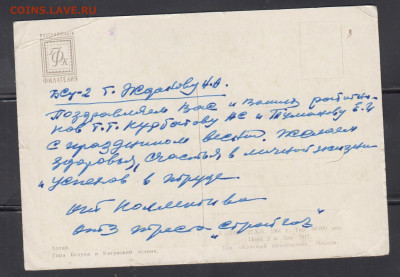 COINS.LAVE.RU
ФИЛАТЕЛИЯ
ДСУ-2 Т. Жданову Н.А.
Поздравляем Вас и Ваших работни-
ков Т.Т. Курбатову АС и Тумакову Е.И
с праздником весны. Желаем
здоровья, счастья в личной жизни
и успехов в труде.
От коллектива
треста "Стройгаз"
Алтай.
Гора Белуха и Катунский ледник.